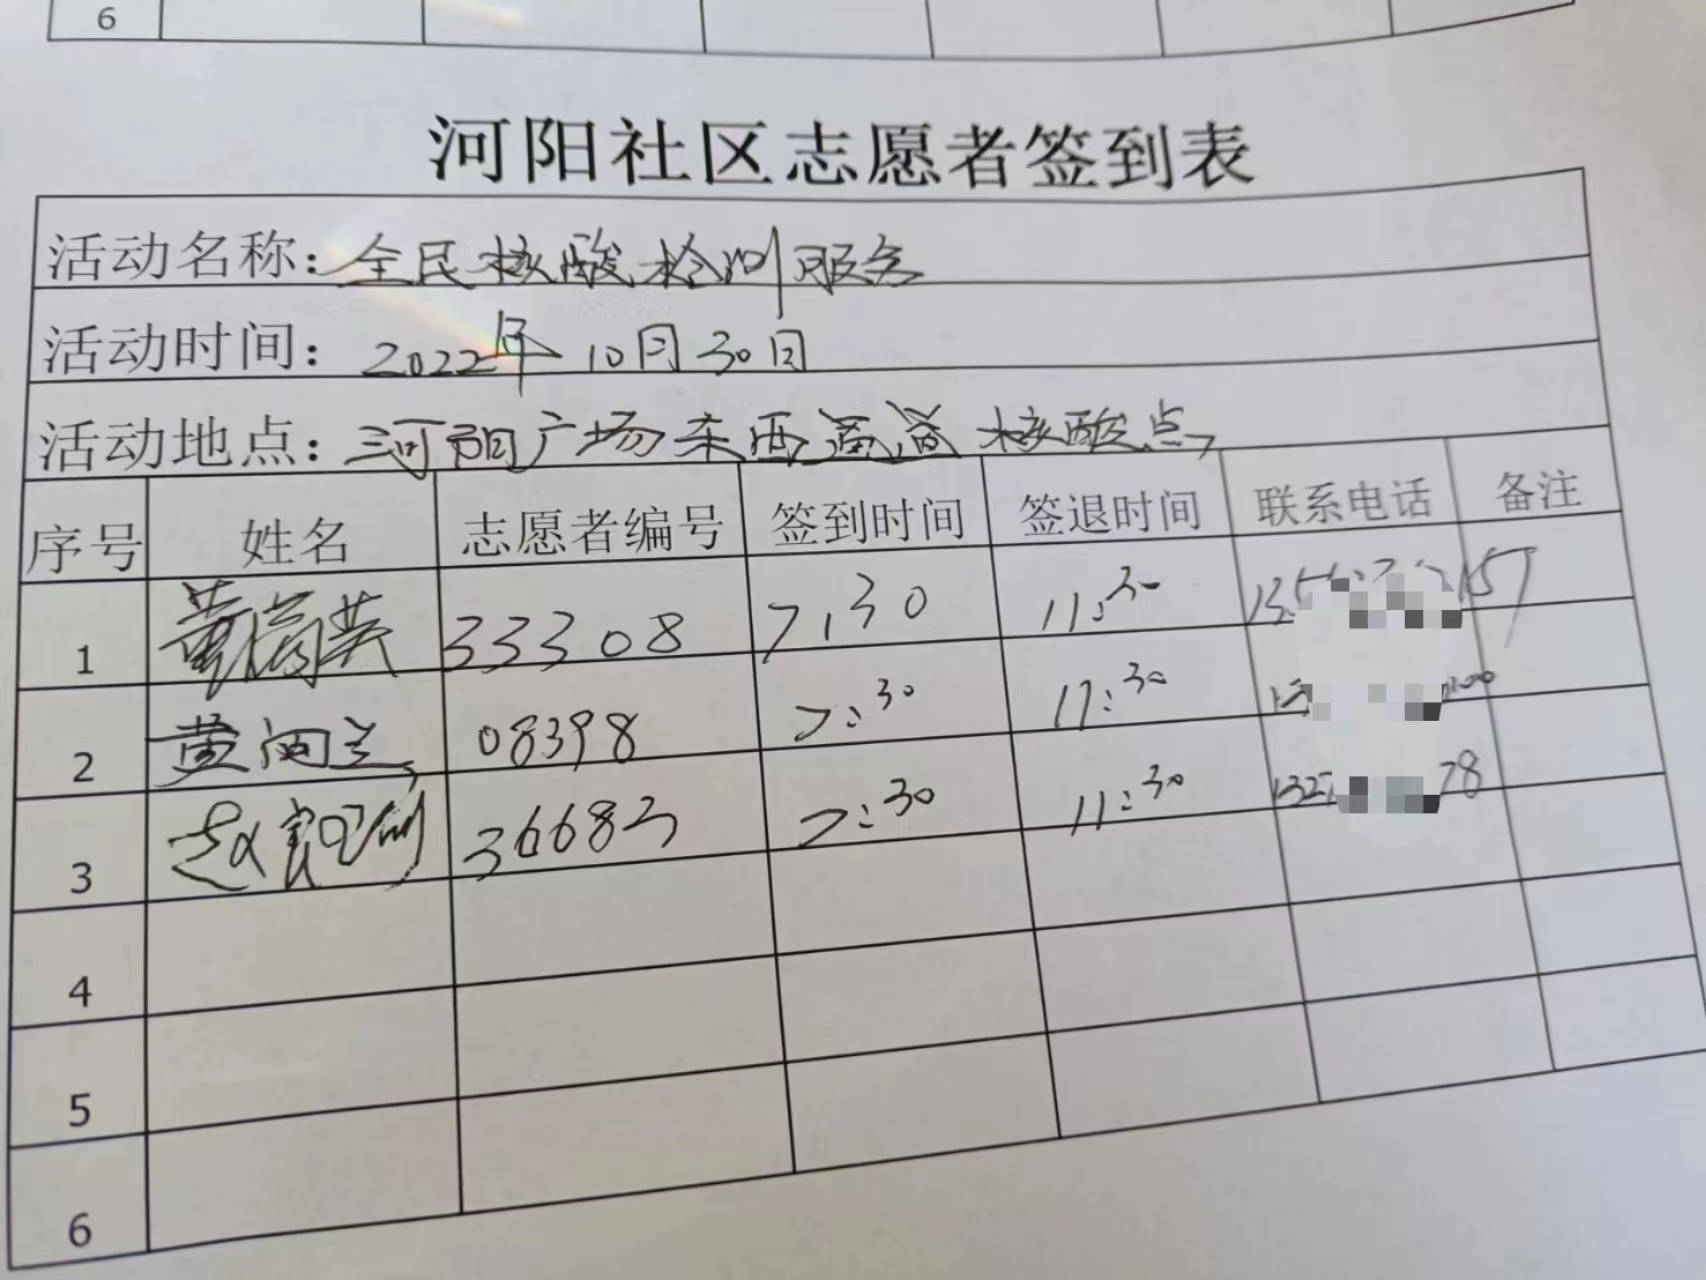 6
河阳社区志愿者签到表
活动名称：全民核酸检测服务
活动时间：2022年10月30日
活动地点：河阳广场东西通道核酸点
序号 姓名 志愿者编号 签到时间 签退时间 联系电话 备注
1 黄 英 33308 7:30 11:30 157
2 黄 兰 08398 7:30 11:30
3 赵 36683 7:30 11:30 1327 78
4
5
6